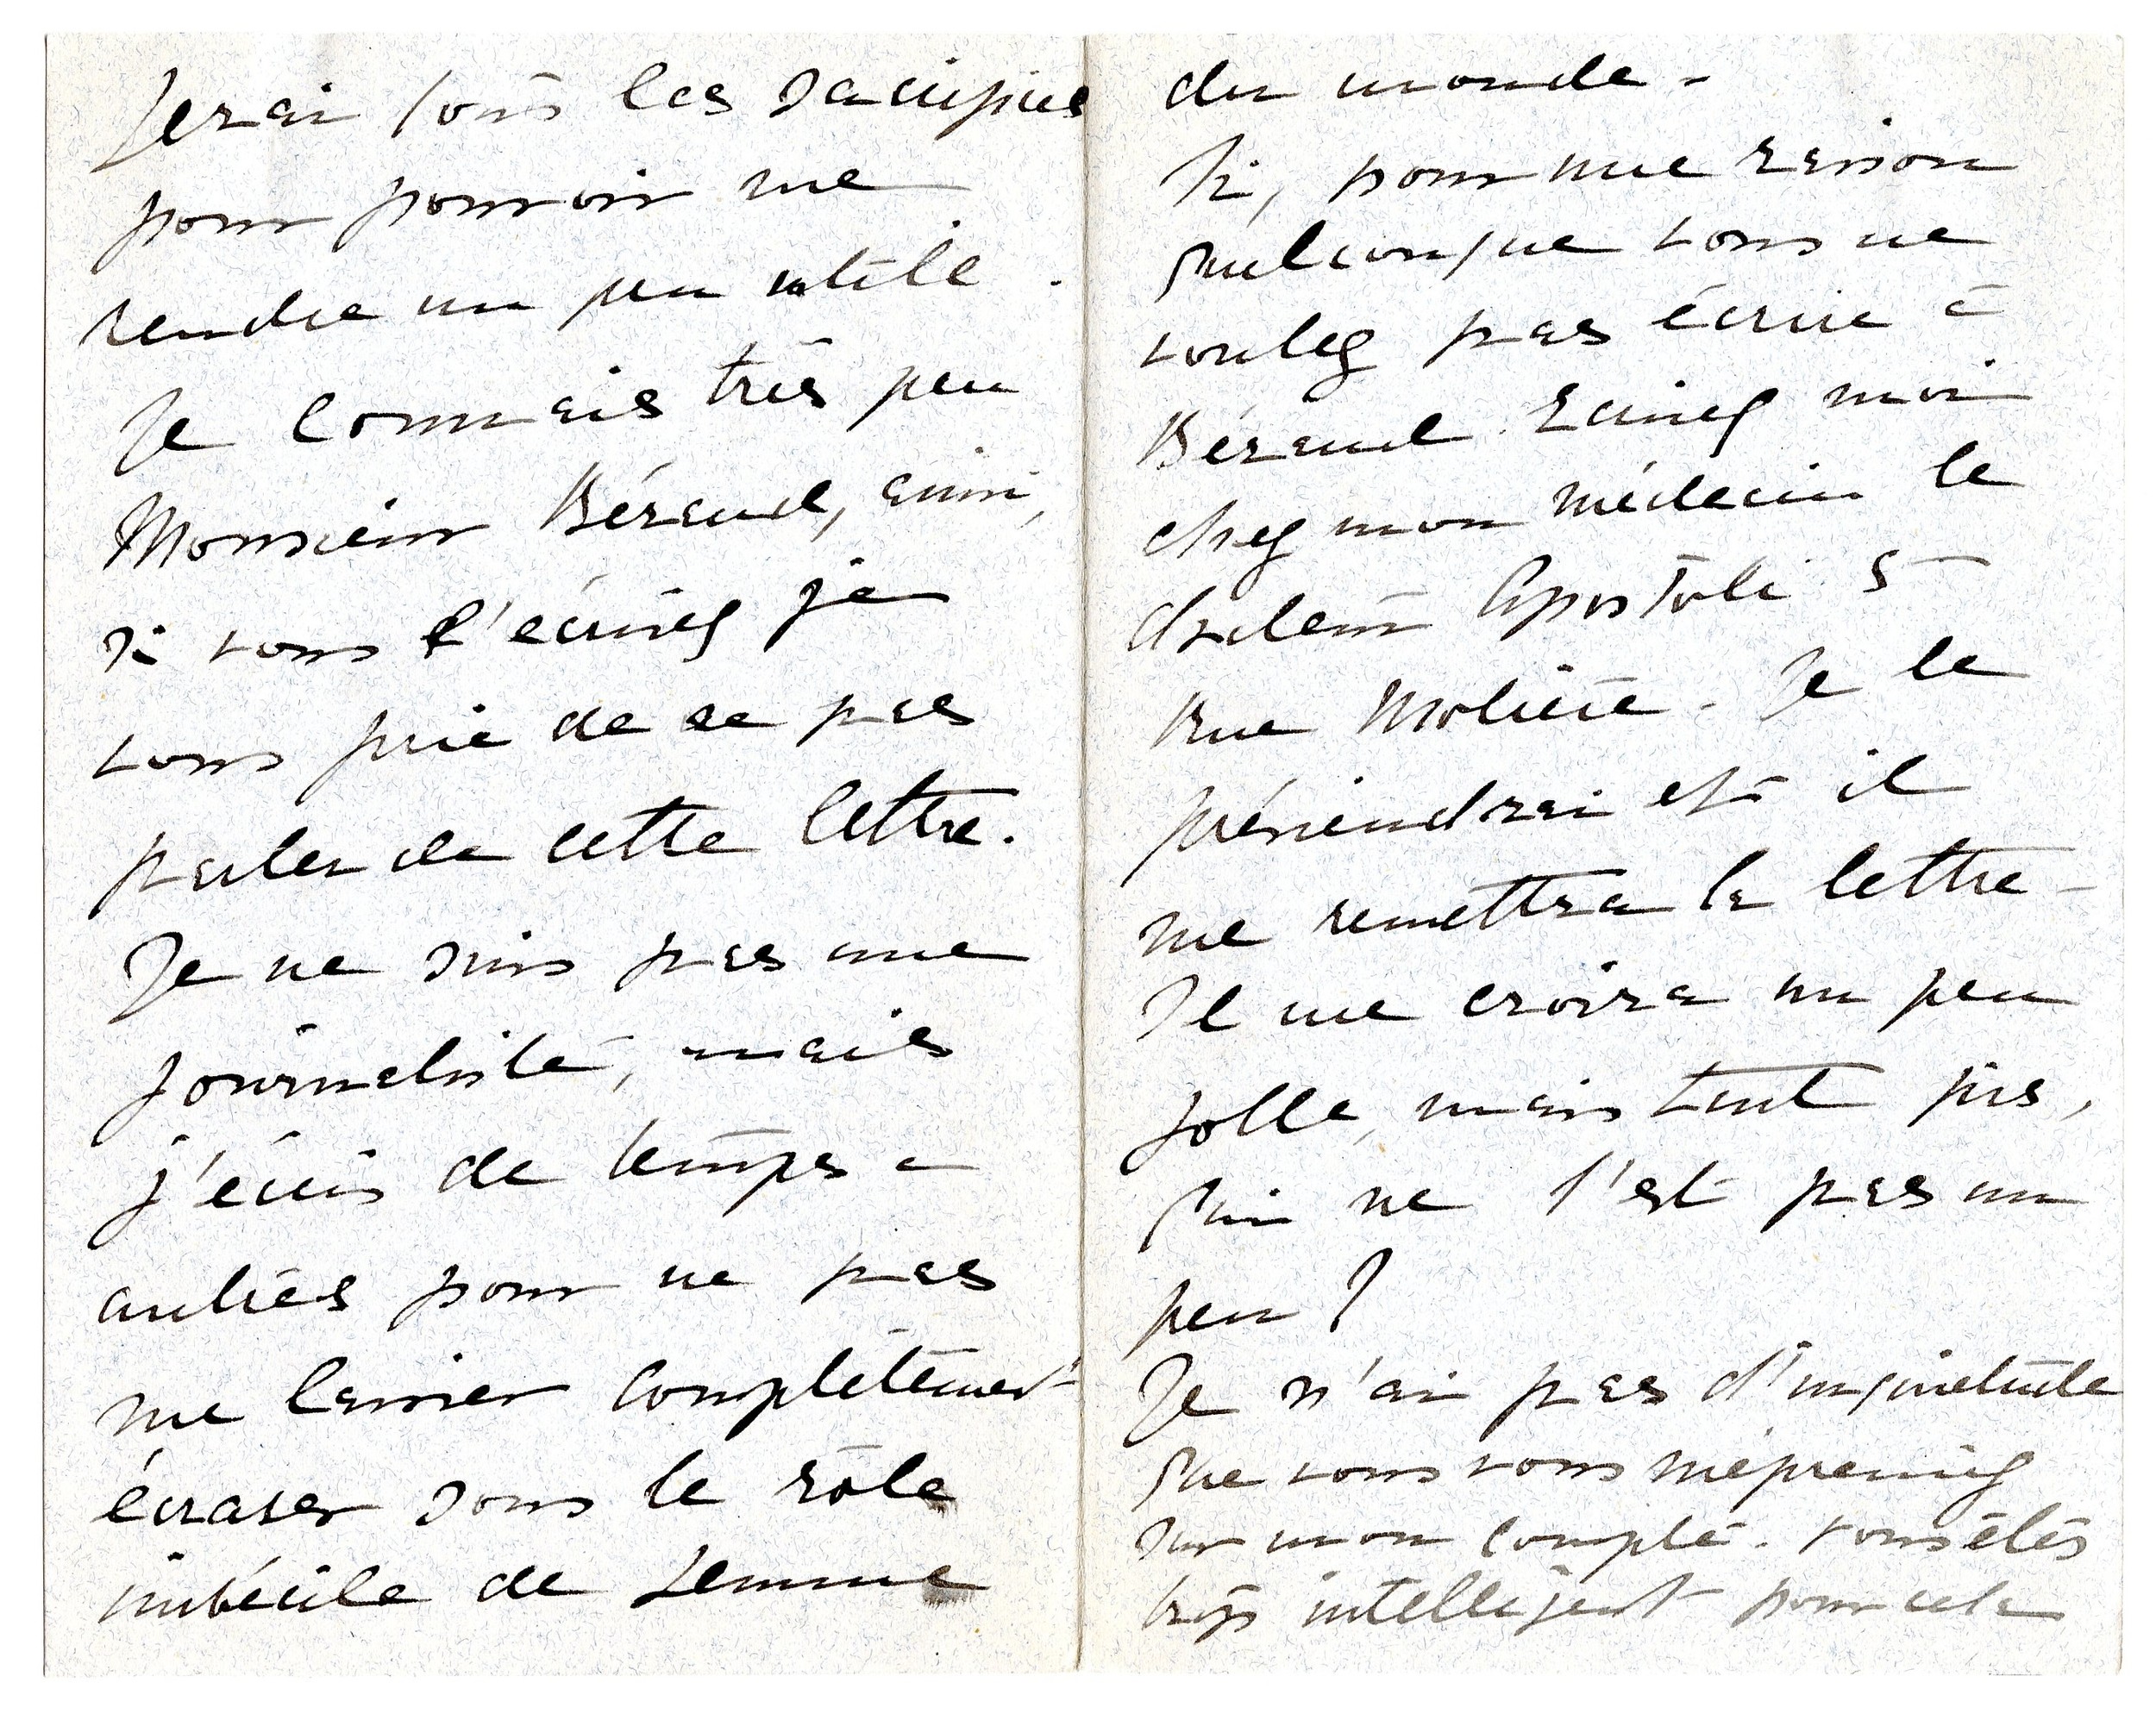 ferai tous les sacrifices
pour pouvoir me
rendre un peu utile.
Je connais très peu
Monsieur Béraud, ainsi,
si vous l'écrivez je
vous prie de ne pas
parler de cette lettre.
Je ne suis pas une
journaliste, mais
j'écris de temps a
autres pour ne pas
me laisser complètement
écraser sous le rôle
imbécile de femme
du monde -
Si, pour une raison
quelconque vous ne
voulez pas écrire à
Béraud. Ecrivez moi
chez mon médecin le
docteur Apostoli 5
Rue Molière. Je le
préviendrai et il
me remettra la lettre -
Il me croira un peu
folle, mais tant pis,
qui ne l'est pas un
peu ?
Je n'ai pas d'inquietude
que vous vous mépreniez
sur mon compte. vous êtes
trop intelligent pour cela